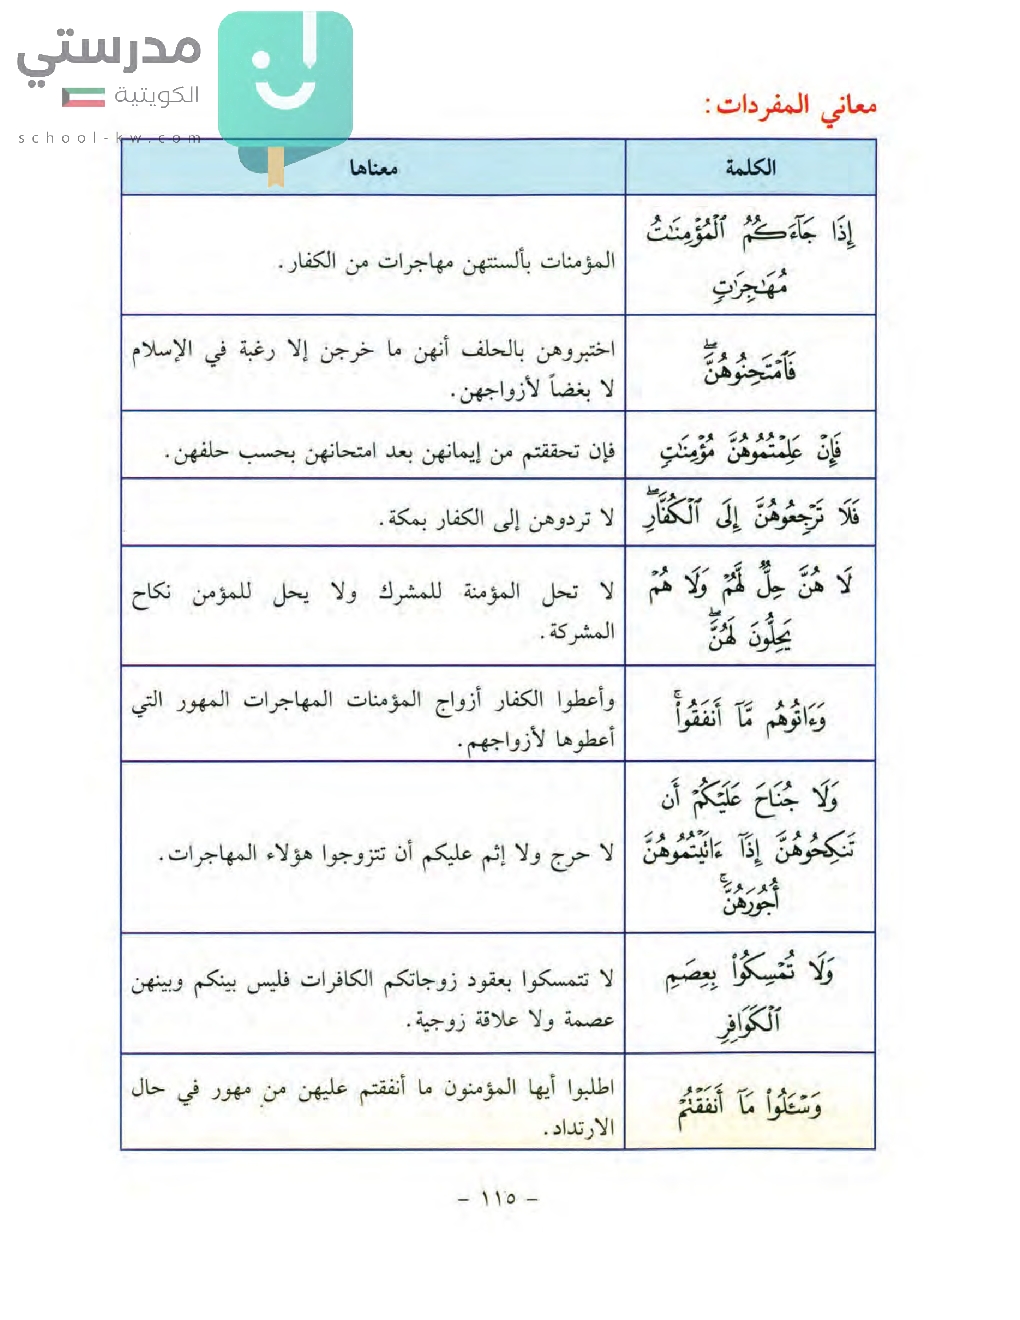 مدرستي
الكويتية
school-kw.com
معاني المفردات:
الكلمة
معناها
إِذَا جَآءَكُمُ ٱلْمُؤْمِنَٰتُ
مُهَٰجِرَٰتٍ
المؤمنات بألسنتهن مهاجرات من الكفار.
فَٱمْتَحِنُوهُنَّۖ
اختبروهن بالحلف أنهن ما خرجن إلا رغبة في الإسلام
لا بغضاً لأزواجهن.
فَإِنْ عَلِمْتُمُوهُنَّ مُؤْمِنَٰتٍ
فإن تحققتم من إيمانهن بعد امتحانهن بحسب حلفهن.
فَلَا تَرْجِعُوهُنَّ إِلَى ٱلْكُفَّارِۖ
لا تردوهن إلى الكفار بمكة.
لَا هُنَّ حِلٌّ لَّهُمْ وَلَا هُمْ
يَحِلُّونَ لَهُنَّۖ
لا تحل المؤمنة للمشرك ولا يحل للمؤمن نكاح
المشركة.
وَءَاتُوهُم مَّآ أَنفَقُواْۚ
وأعطوا الكفار أزواج المؤمنات المهاجرات المهور التي
أعطوها لأزواجهم.
وَلَا جُنَاحَ عَلَيْكُمْ أَن
تَنكِحُوهُنَّ إِذَآ ءَاتَيْتُمُوهُنَّ
أُجُورَهُنَّۚ
لا حرج ولا إثم عليكم أن تتزوجوا هؤلاء المهاجرات.
وَلَا تُمْسِكُواْ بِعِصَمِ
ٱلْكَوَافِرِ
لا تتمسكوا بعقود زوجاتكم الكافرات فليس بينكم وبينهن
عصمة ولا علاقة زوجية.
وَسْـَٔلُواْ مَآ أَنفَقْتُمْ
اطلبوا أيها المؤمنون ما أنفقتم عليهن من مهور في حال
الارتداد.
- ١١٥ -